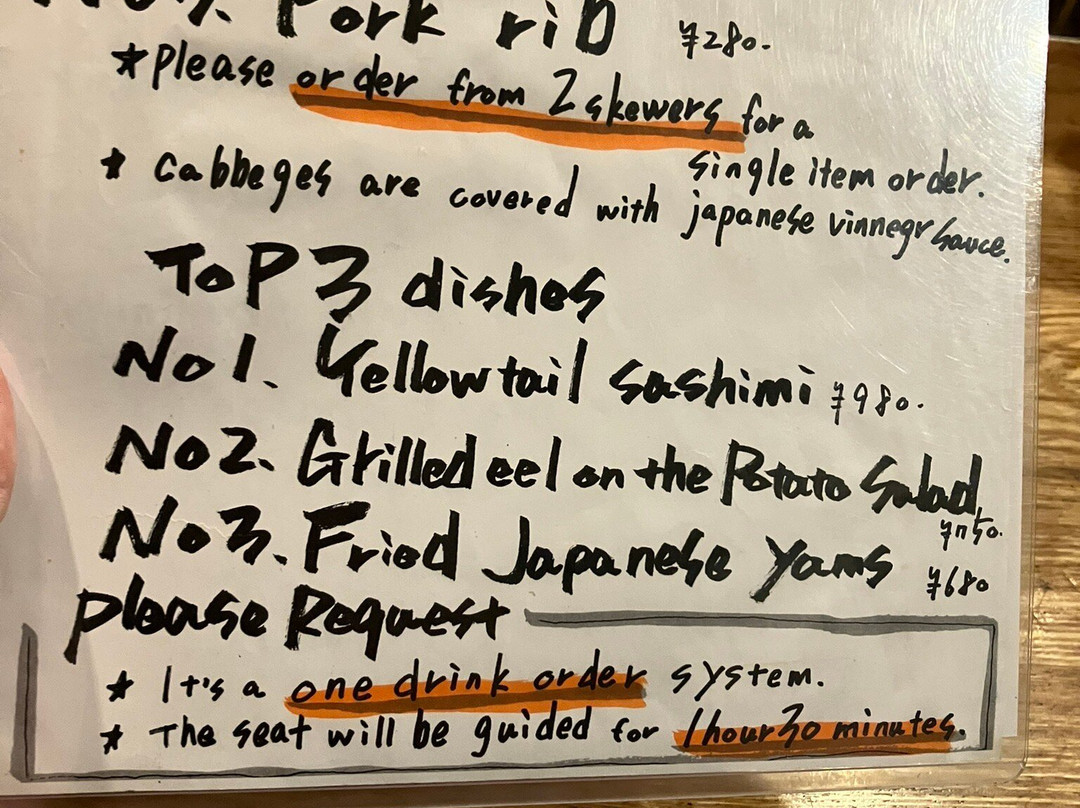 Pork rib ¥280.
*please order from 2 skewers for a
single item order.
* cabbeges are covered with japanese vinnegr sauce.
Top 3 dishes
No1. Yellowtail sashimi ¥980.
No2. Grilled eel on the Potato Salad
¥750.
No3. Fried Japanese Yams ¥680
please Request
* It's a one drink order system.
* The seat will be guided for 1hour30 minutes.